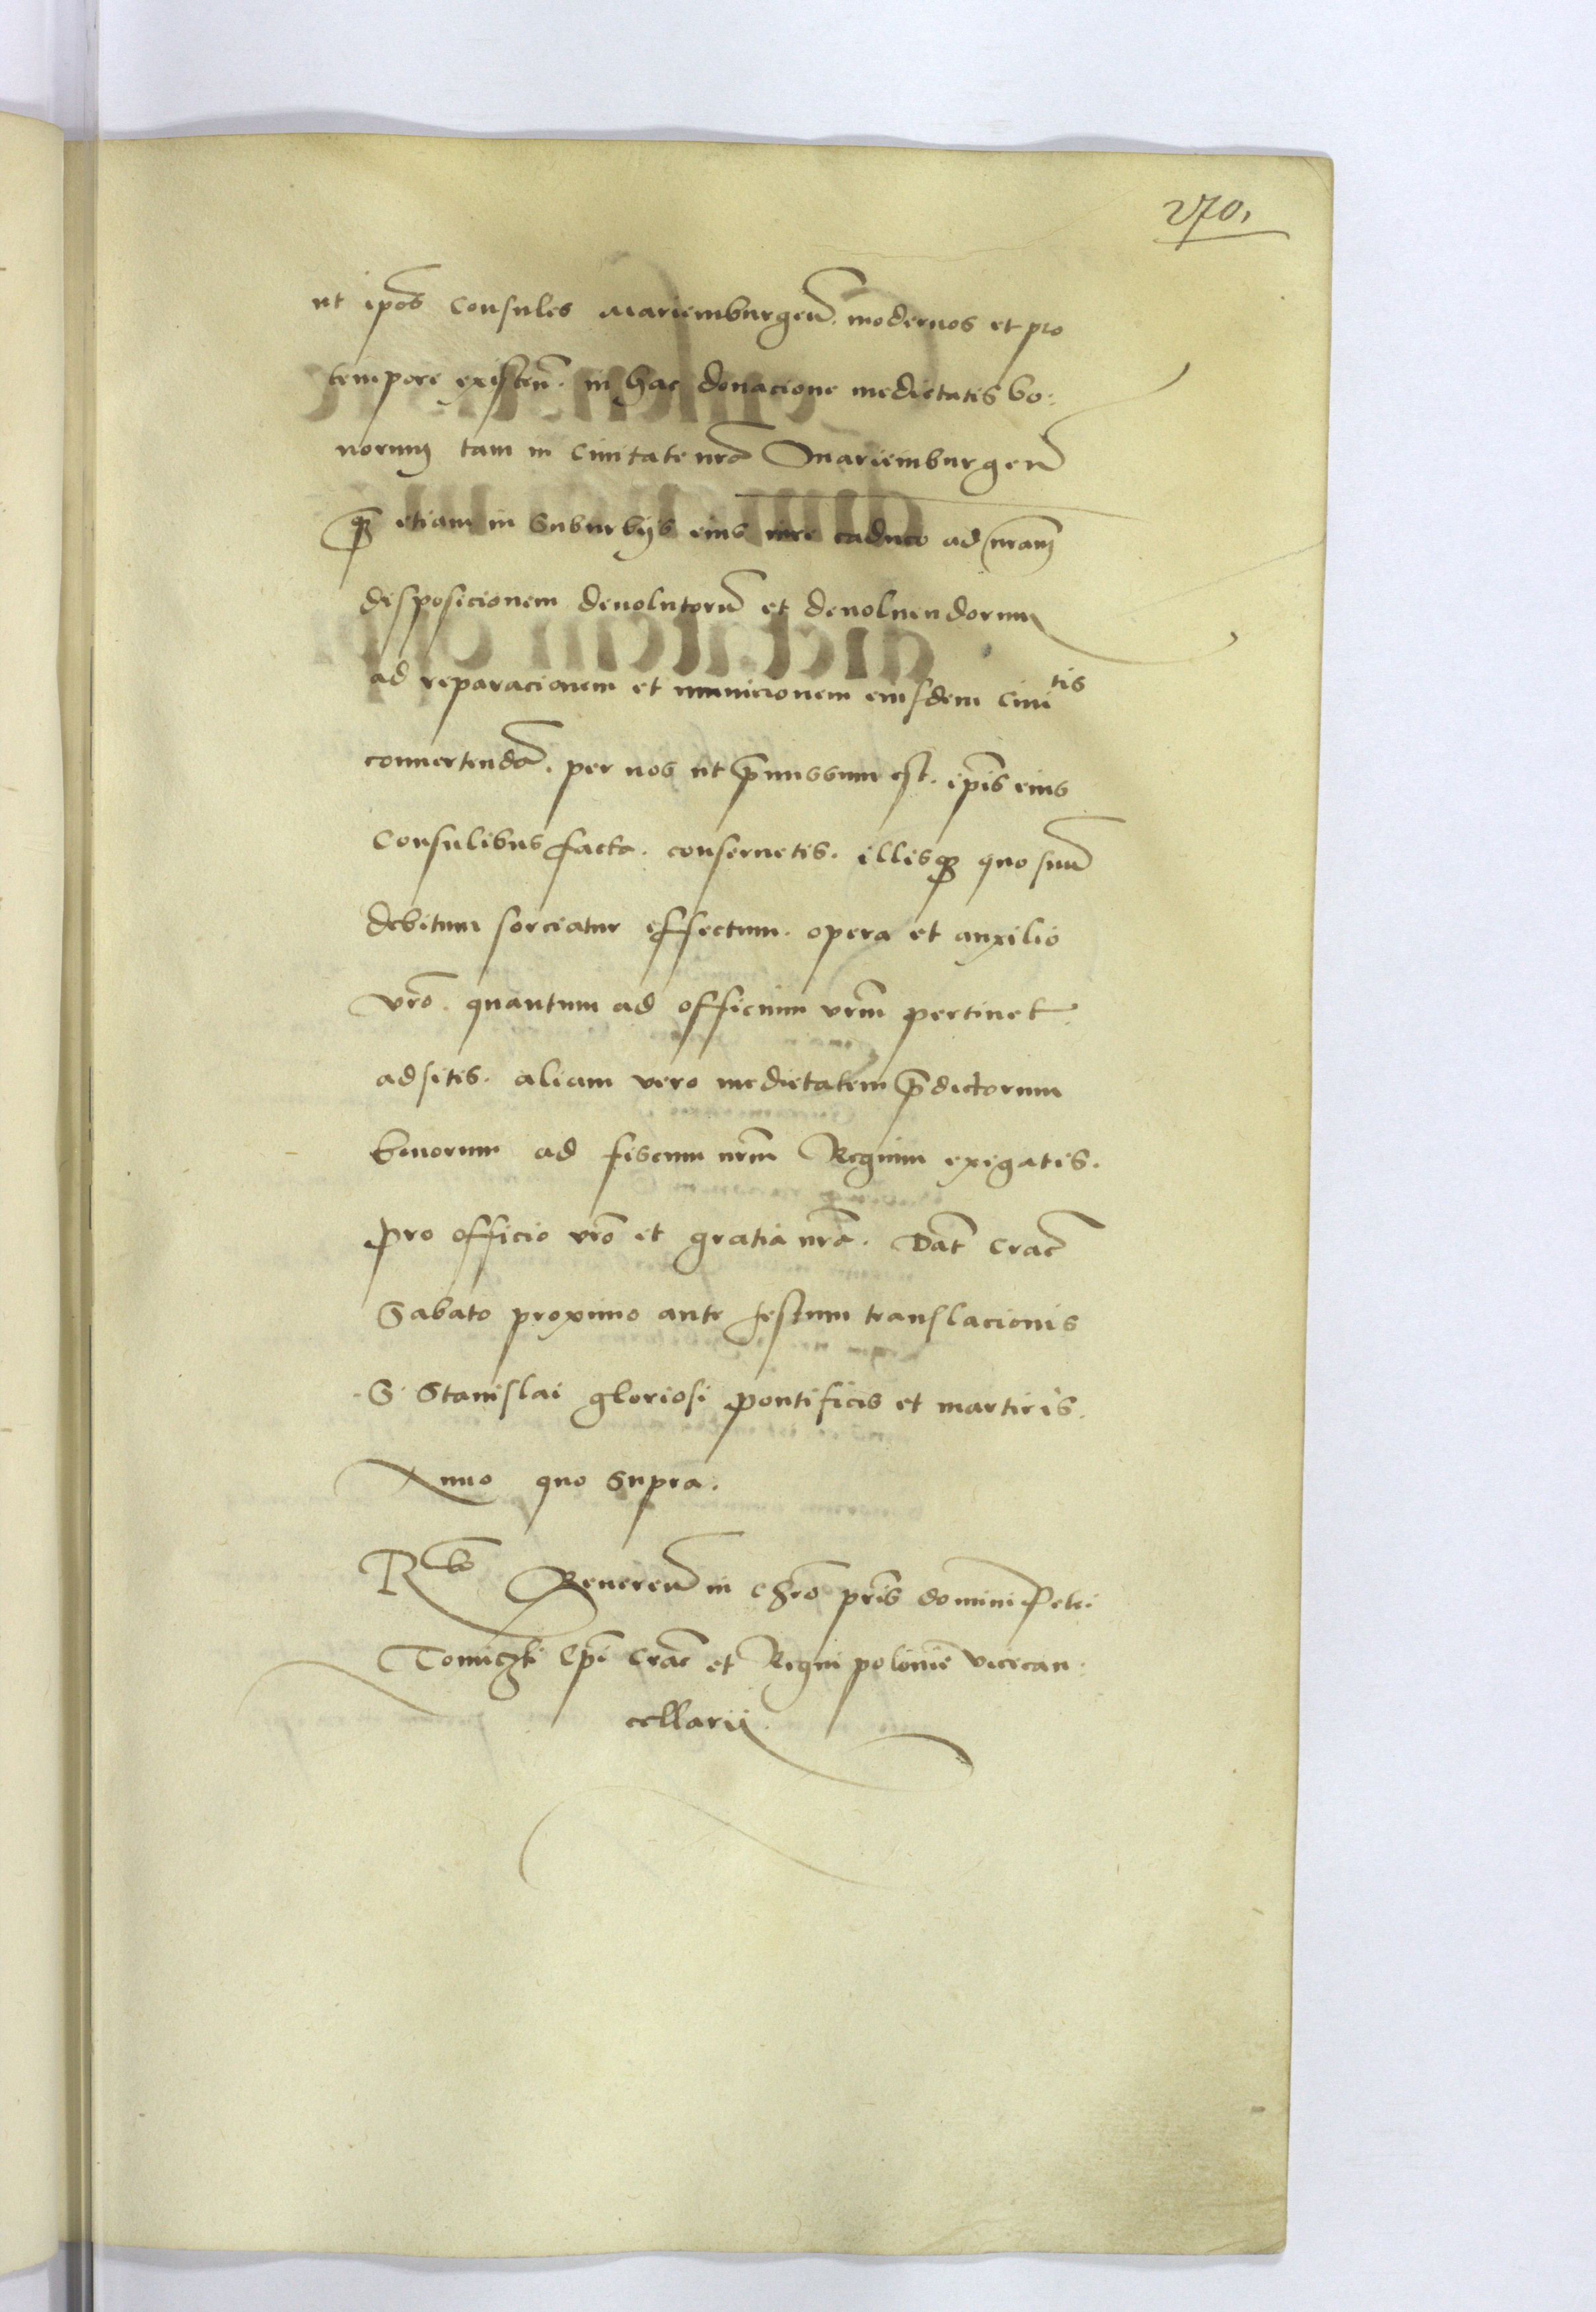 270,
ut ip̄os Consules Mariemburgeñ. modernos et pro
tempore existeñ. in hac donacione medietatis bo:
norum tam in Ciuitate nr̄a Mariemburgeñ
q̃ etiam in Suburbijs eius iure caduco ad nr̄am
disposicionem deuolutorũ et deuoluendorum
ad reparacionem et municionem eiusdem Ciuitis
conuertenda. per nos ut p̄missum est. ip̄is eius
Consulibus facta. conseruetis. illisq; quo suũ
debitum sorciatur effectum. opera et auxilio
vr̄o. quantum ad officium vr̄m pertinet.
adsitis. aliam vero medietatem p̄dictorum
bonorum ad fiscum nr̄m Regium exigatis.
pro officio vr̄o et gratia nr̄a. Dat̃ Crac̃
Sabato proximo ante festum translacionis
S. Stanislai gloriosi pontificis et martiris.
Anno quo supra.
Reuereñ in chr̄o pr̄is domini Petri
Tomiczki Ep̄i Crac̃ et Regni polonie vicecan:
cellarij